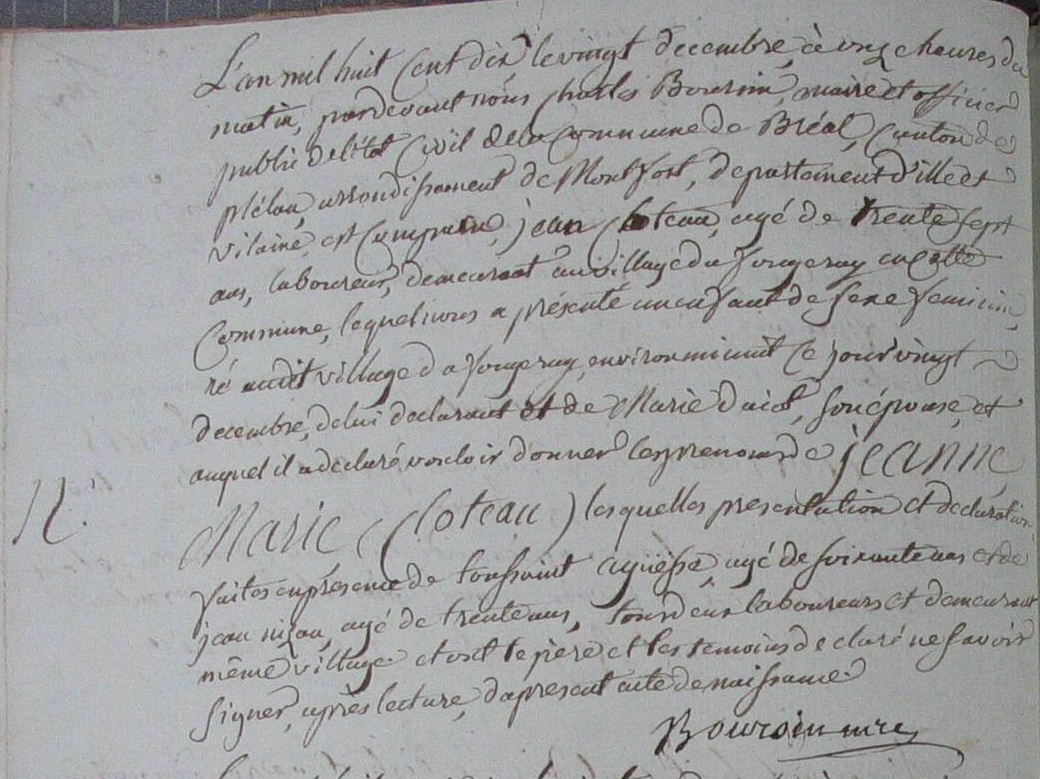 L'an mil huit Cent dix le vingt decembre, à onze heures du
matin, pardevant nous Charles Boursin, maire et officier
public de l'état Civil de la Commune de Bréal, Canton de
plélan, arrondissement de Montfort, departement d'ille et
vilaine, est Comparu, jean Cloteau, agé de trente sept
ans, laboureur, demeurant au village du fougeray en cette
Commune, lequel nous a présenté un enfant de sexe feminin,
né audit village du fougeray, environ minuit Ce jour vingt
decembre, de lui declarant et de Marie daiot, son épouse, et
auquel il a declaré vouloir donner les prenoms de jeanne
Marie (Cloteau) lesquelles presentation et declaration
faites en présence de toussaint agüesse, agé de soixante ans et de
jean nizan, agé de trente ans, tous deux laboureurs et demeurant
même village et ont le père et les temoins declaré ne Savoir
Signer, après lecture, du present acte de naissance.
Boursin mre
N.